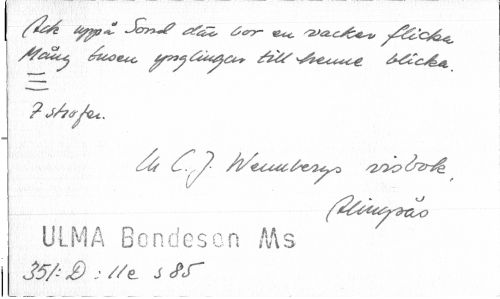 Ack uppå Sond där bor en vacker flicka
Mång tusen ynglingar till henne blicka.
7 strofer.
Ur C. J. Wennbergs visbok,
Alingsås
ULMA Bondeson Ms
351: D : 11e s 85